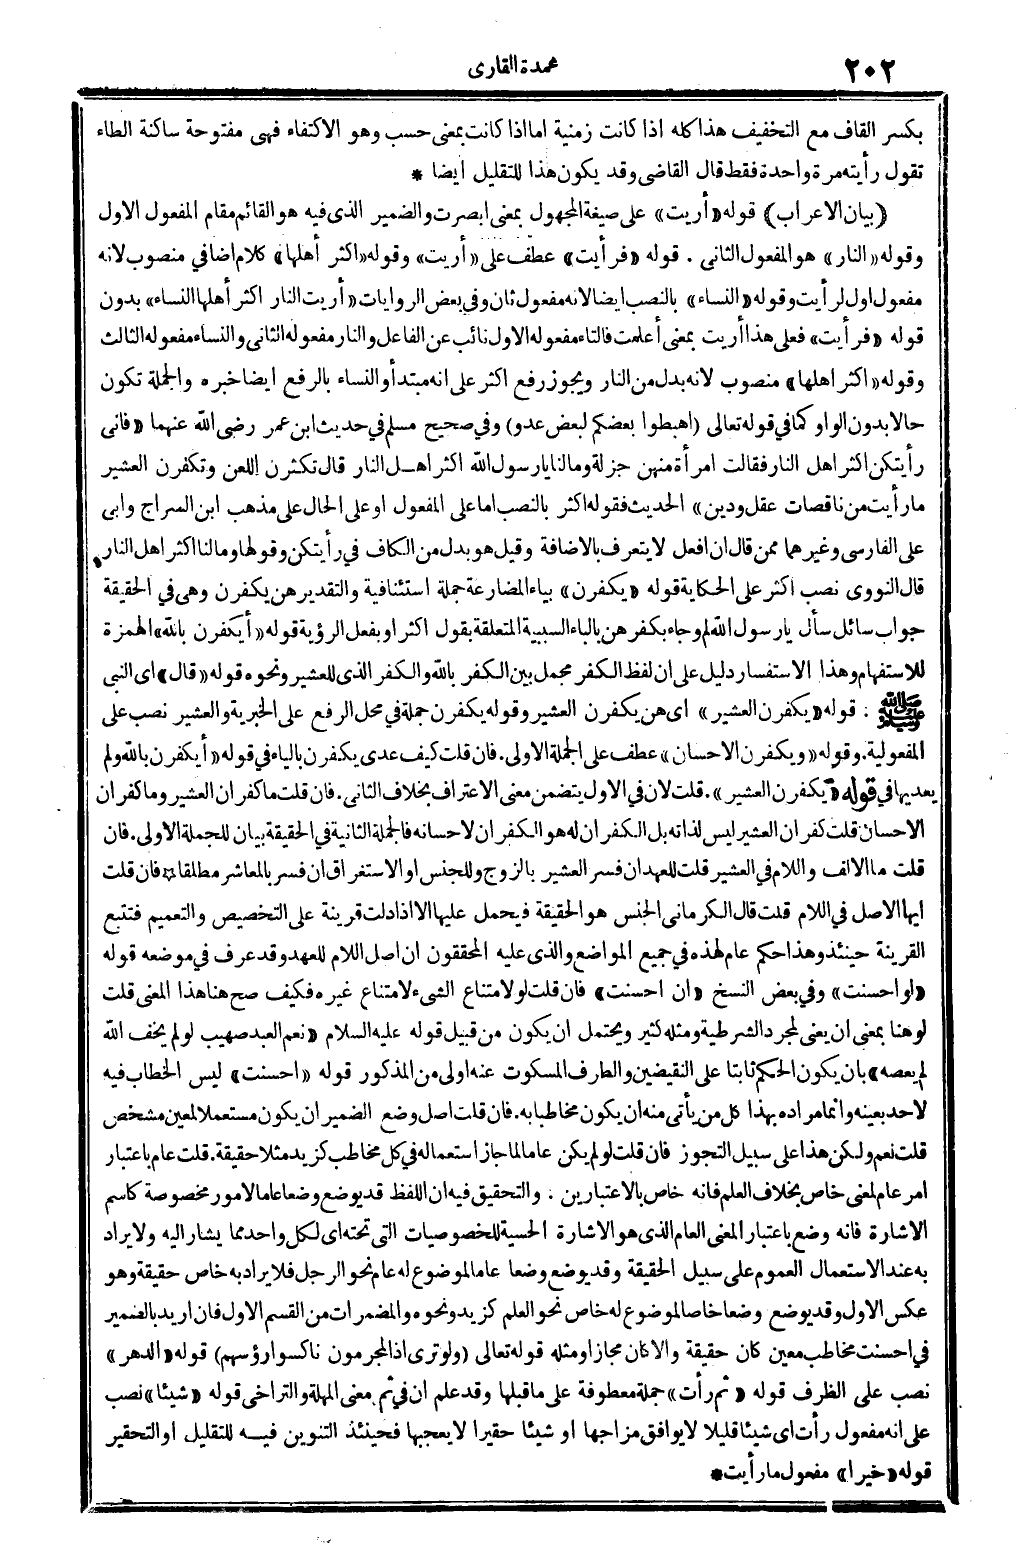 ٢٠٢
عمدة القارى
بكسر القاف مع التخفيف هذا كله اذا كانت زمنية اما اذا كانت بمعنى حسب وهو الاكتفاء فهى مفتوحة ساكنة الطاء
تقول رأيته مرة واحدة فقط قال القاضى وقد يكون هذا للتقليل ايضا *
(بيان الاعراب) قوله «أريت» على صيغة المجهول بمعنى ابصرت والضمير الذى فيه هو القائم مقام المفعول الاول
وقوله «النار» هو المفعول الثانى . قوله «فرأيت» عطف على «أريت» وقوله «اكثر أهلها» كلام اضافي منصوب لانه
مفعول اول لرأيت وقوله «النساء» بالنصب ايضا لانه مفعول ثان وفي بعض الروايات «أريت النار اكثر أهلها النساء» بدون
قوله «فرأيت» فعلى هذا أريت بمعنى أعلمت فالتاء مفعوله الاول نائب عن الفاعل والنار مفعوله الثانى والنساء مفعوله الثالث
وقوله «اكثر اهلها» منصوب لانه بدل من النار ويجوز رفع اكثر على انه مبتدأ والنساء بالرفع ايضا خبره والجملة تكون
حالا بدون الواو كما في قوله تعالى (اهبطوا بعضكم لبعض عدو) وفي صحيح مسلم في حديث ابن عمر رضى الله عنهما «فانى
رأيتكن اكثر اهل النار فقالت امرأة منهن جزلة وما لنا يا رسول الله اكثر اهل النار قال تكثرن اللعن وتكفرن العشير
ما رأيت من ناقصات عقل ودين» الحديث فقوله اكثر بالنصب اما على المفعول او على الحال على مذهب ابن السراج وابى
على الفارسى وغيرهما ممن قال ان افعل لا يتعرف بالاضافة وقيل هو بدل من الكاف في رأيتكن وقولها وما لنا اكثر اهل النار
قال النووى نصب اكثر على الحكاية قوله «يكفرن» بياء المضارعة جملة استئنافية والتقدير هن يكفرن وهى في الحقيقة
جواب سائل سأل يا رسول الله لم وجاء بكفرهن بالباء السببية المتعلقة بقول اكثر او بفعل الرؤية قوله «أيكفرن بالله» الهمزة
للاستفهام وهذا الاستفسار دليل على ان لفظ الكفر مجمل بين الكفر بالله والكفر الذى للعشير ونحوه قوله «قال» اى النبى
ﷺ : قوله «يكفرن العشير» اى هن يكفرن العشير وقوله يكفرن جملة في محل الرفع على الخبرية والعشير نصب على
المفعولية. وقوله «ويكفرن الاحسان» عطف على الجملة الاولى. فان قلت كيف عدى يكفرن بالباء في قوله «أيكفرن بالله» ولم
يعديها في قوله «يكفرن العشير». قلت لان في الاول يتضمن معنى الاعتراف بخلاف الثانى. فان قلت ما كفران العشير وما كفران
الاحسان قلت كفران العشير ليس لذاته بل الكفران له هو الكفران لاحسانه فالجملة الثانية في الحقيقة بيان للجملة الاولى. فان
قلت ما الالف واللام في العشير قلت للعهد ان فسر العشير بالزوج وللجنس او الاستغراق ان فسر بالمعاشر مطلقا * فان قلت
ايها الاصل في اللام قلت قال الكرمانى الجنس هو الحقيقة فيحمل عليها الا اذا دلت قرينة على التخصيص والتعميم فتتبع
القرينة حينئذ وهذا حكم عام لهذه في جميع المواضع والذى عليه المحققون ان اصل اللام للعهد وقد عرف في موضعه قوله
«لو احسنت» وفي بعض النسخ «ان احسنت» فان قلت لو لامتناع الشىء لامتناع غيره فكيف صح هنا هذا المعنى قلت
لو هنا بمعنى ان يعنى لمجرد الشرطية ومثله كثير ويحتمل ان يكون من قبيل قوله عليه السلام «نعم العبد صهيب لو لم يخف الله
لم يعصه» بان يكون الحكم ثابتا على النقيضين والطرف المسكوت عنه اولى من المذكور قوله «احسنت» ليس الخطاب فيه
لاحد بعينه وانما مراده بهذا كل من يأتى منه ان يكون مخاطبا به. فان قلت اصل وضع الضمير ان يكون مستعملا لمعين مشخص
قلت نعم ولكن هذا على سبيل التجوز فان قلت لو لم يكن عاما لما جاز استعماله في كل مخاطب كزيد مثلا حقيقة. قلت عام باعتبار
امر عام لمعنى خاص بخلاف العلم فانه خاص بالاعتبارين . والتحقيق فيه ان اللفظ قد يوضع وضعا عاما لامور مخصوصة كاسم
الاشارة فانه وضع باعتبار المعنى العام الذى هو الاشارة الحسية للخصوصيات التى تحته اى لكل واحد مما يشار اليه ولا يراد
به عند الاستعمال العموم على سبيل الحقيقة وقد يوضع وضعا عاما لموضوع له عام نحو الرجل فلا يراد به خاص حقيقة وهو
عكس الاول وقد يوضع وضعا خاصا لموضوع له خاص نحو العلم كزيد ونحوه والمضمرات من القسم الاول فان اريد بالضمير
في احسنت مخاطب معين كان حقيقة والا كان مجازا ومثله قوله تعالى (ولو ترى اذ المجرمون ناكسوا رؤسهم) قوله «الدهر»
نصب على الظرف قوله «ثم رأت» جملة معطوفة على ما قبلها وقد علم ان في ثم معنى المهلة والتراخى قوله «شيئا» نصب
على انه مفعول رأت اى شيئا قليلا لا يوافق مزاجها او شيئا حقيرا لا يعجبها فحينئذ التنوين فيه للتقليل او التحقير
قوله «خيرا» مفعول ما رأيت *